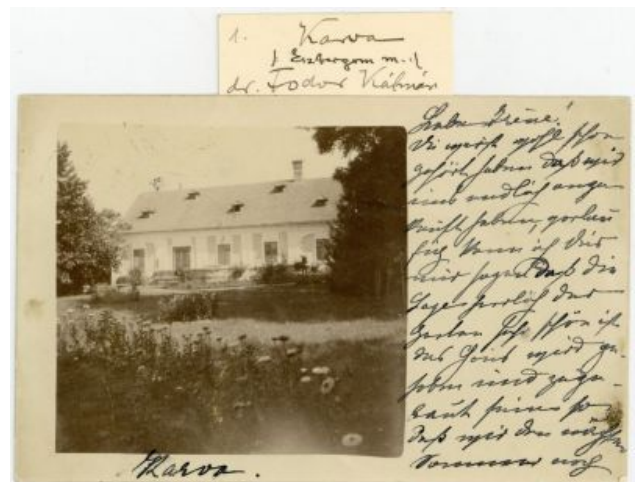 1. Karva
/ Esztergom m. /
dr. Fodor Kálmán
Liebe Irene!
Du wirst wohl schon
gehört haben daß wir
uns endlich ange
kauft haben, vorläu
fig kann ich Dir
nur sagen daß die
Lage herrlich der
Garten sehr schön ist
das Haus wird ge-
hoben und zuge-
baut
daß wir den nächsten
Sommer noch
Karva.